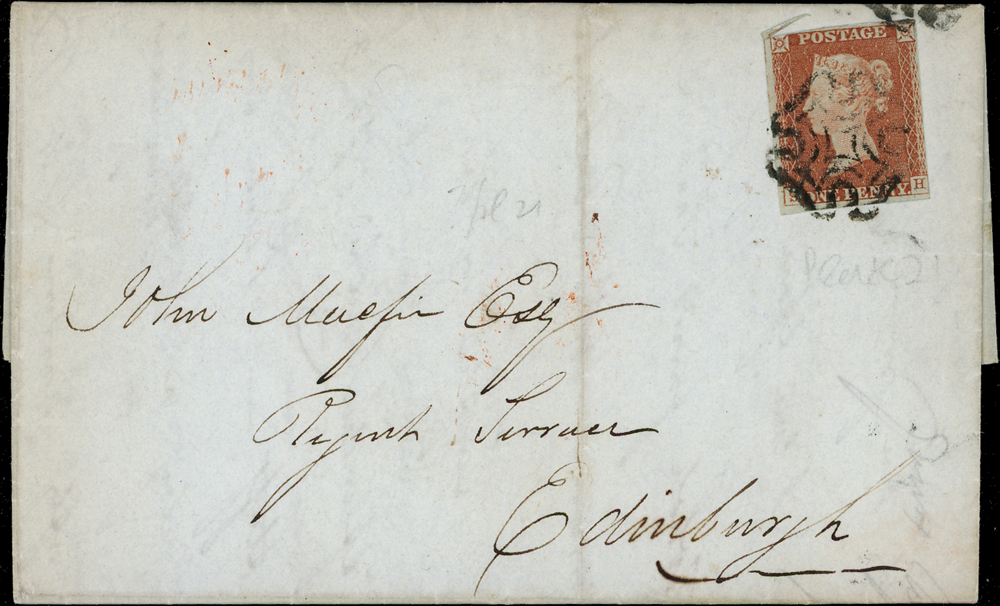 POSTAGE
S ONE PENNY H
pl 21
John Macfie Esq
Regent Terrace
Edinburgh